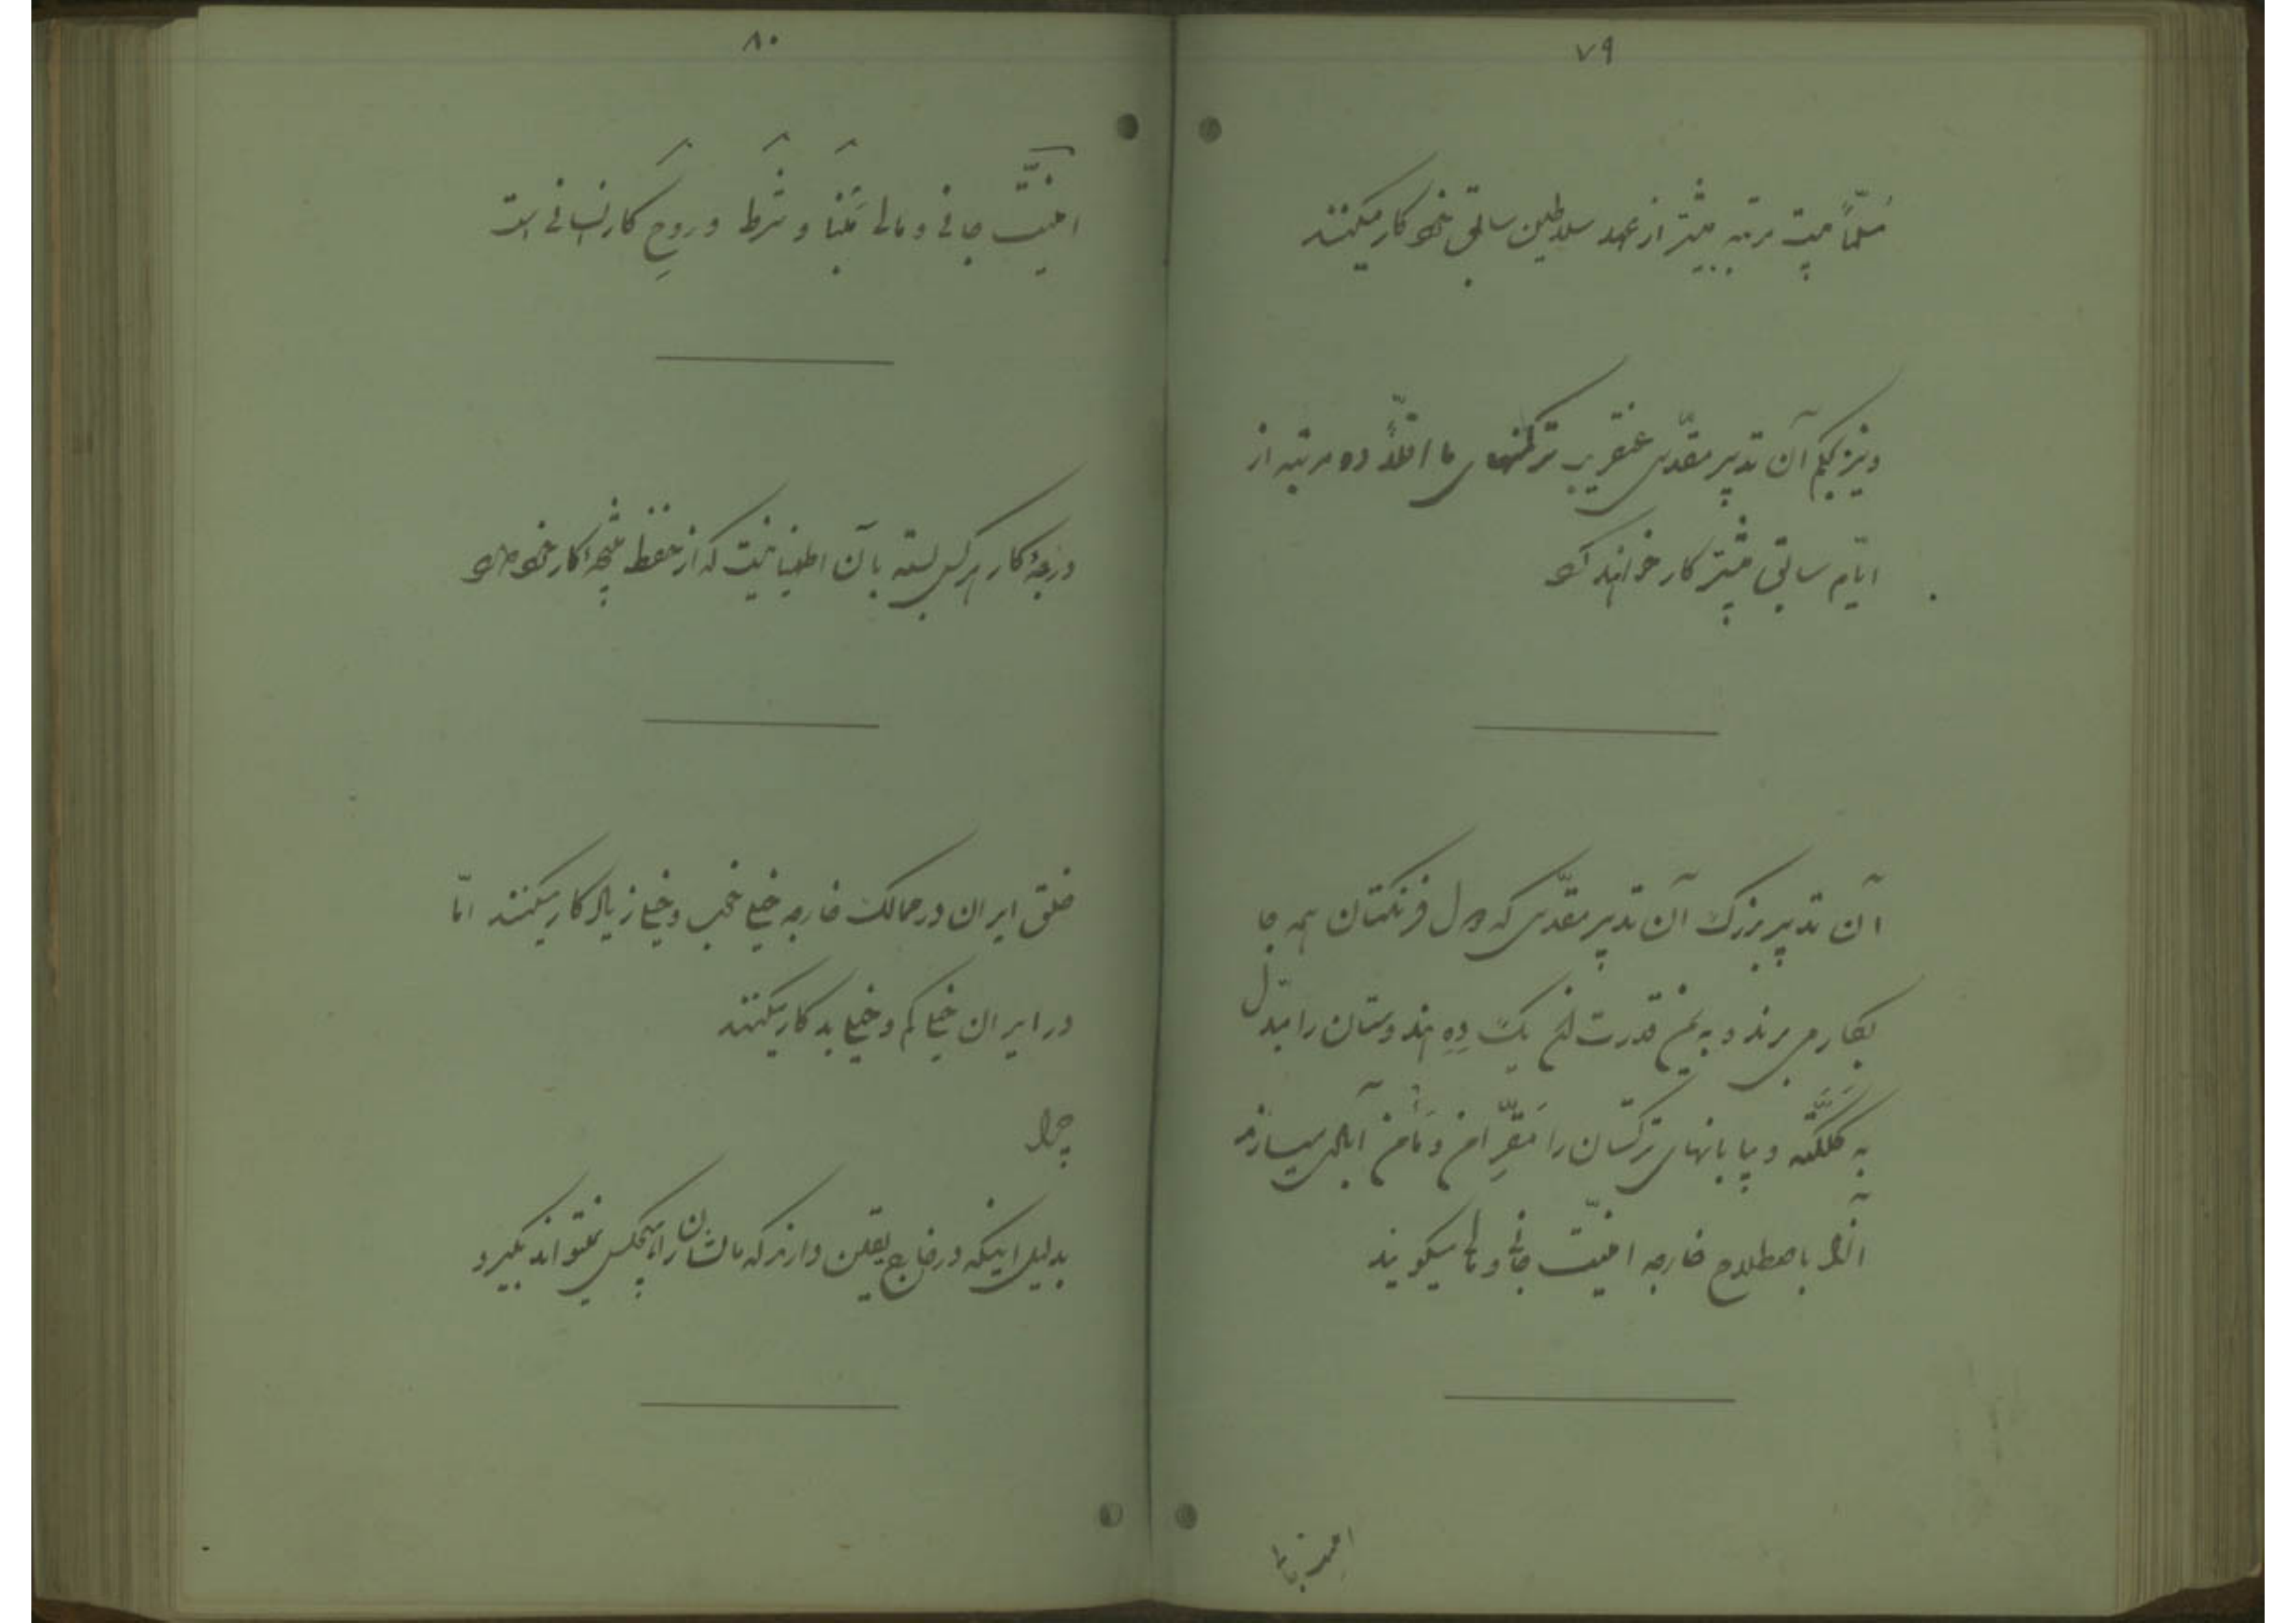 ۷۹
مُسلّماً بیست مرتبه بیشتر از عهد سلاطین سابق خود کار میکنند
و نیز بحکم آن تدبیر مقدّس عنقریب ترکمنهای ما اقلاً ده مرتبه از
ایّام سابق بیشتر کار خواهند کرد
آن تدبیر بزرگ آن تدبیر مقدّس که دول فرنگستان همه جا
بکار می برند و به یمن قدرت آن یک دِهِ هندوستان را مبدّل
به کَلکَتّه و بیابانهای ترکستان را مَقَرِّ امن و مَأمن آبادی میسازند
آنرا باصطلاح خارجه امنیّت جانی و مالی میگویند
امنیت جانی
۸۰
امنیّت جانی و مالی مَبنا و شرط و روحِ کار انسانی است
درجهٔ کار هر کس بسته بآن اطمینانیست که از حفظ نتیجهٔ کار خود دارد
خلق ایران در ممالک خارجه خیلی خوب و خیلی زیاد کار میکنند امّا
در ایران خیلی کم و خیلی بد کار میکنند
چرا
بدلیل اینکه در خارج یقین دارند که مالشان را هیچکس نمیتواند بگیرد